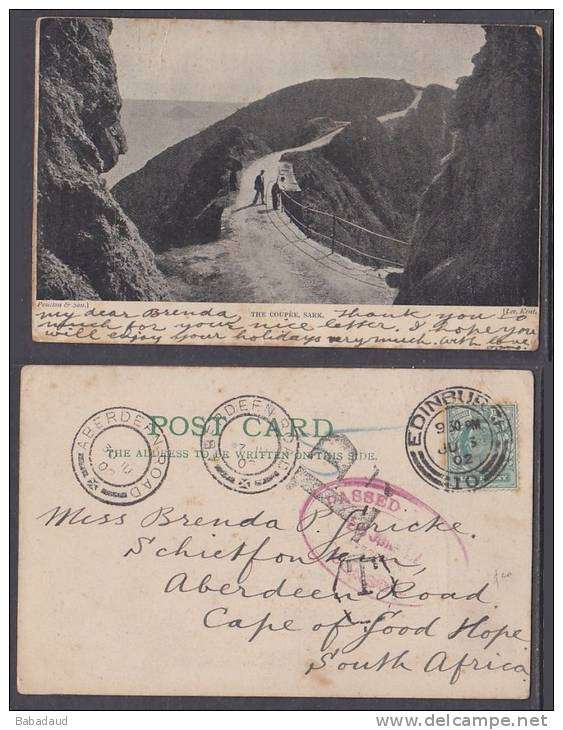 Poulton & Son.]
THE COUPÉE, SARK.
[Lee, Kent.
My dear Brenda, Thank you so
much for your nice letter. I hope you
will enjoy your holidays very much. with love
POST CARD
THE ADDRESS TO BE WRITTEN ON THIS SIDE.
ABERDEEN ROAD
ABERDEEN ROAD
02
EDINBURGH
9 30 PM
JU 3
02
110
PASSED
T
Miss Brenda P. Gericke.
Aberdeen Road
Cape of Good Hope
South Africa
Babadaud
www.delcampe.net